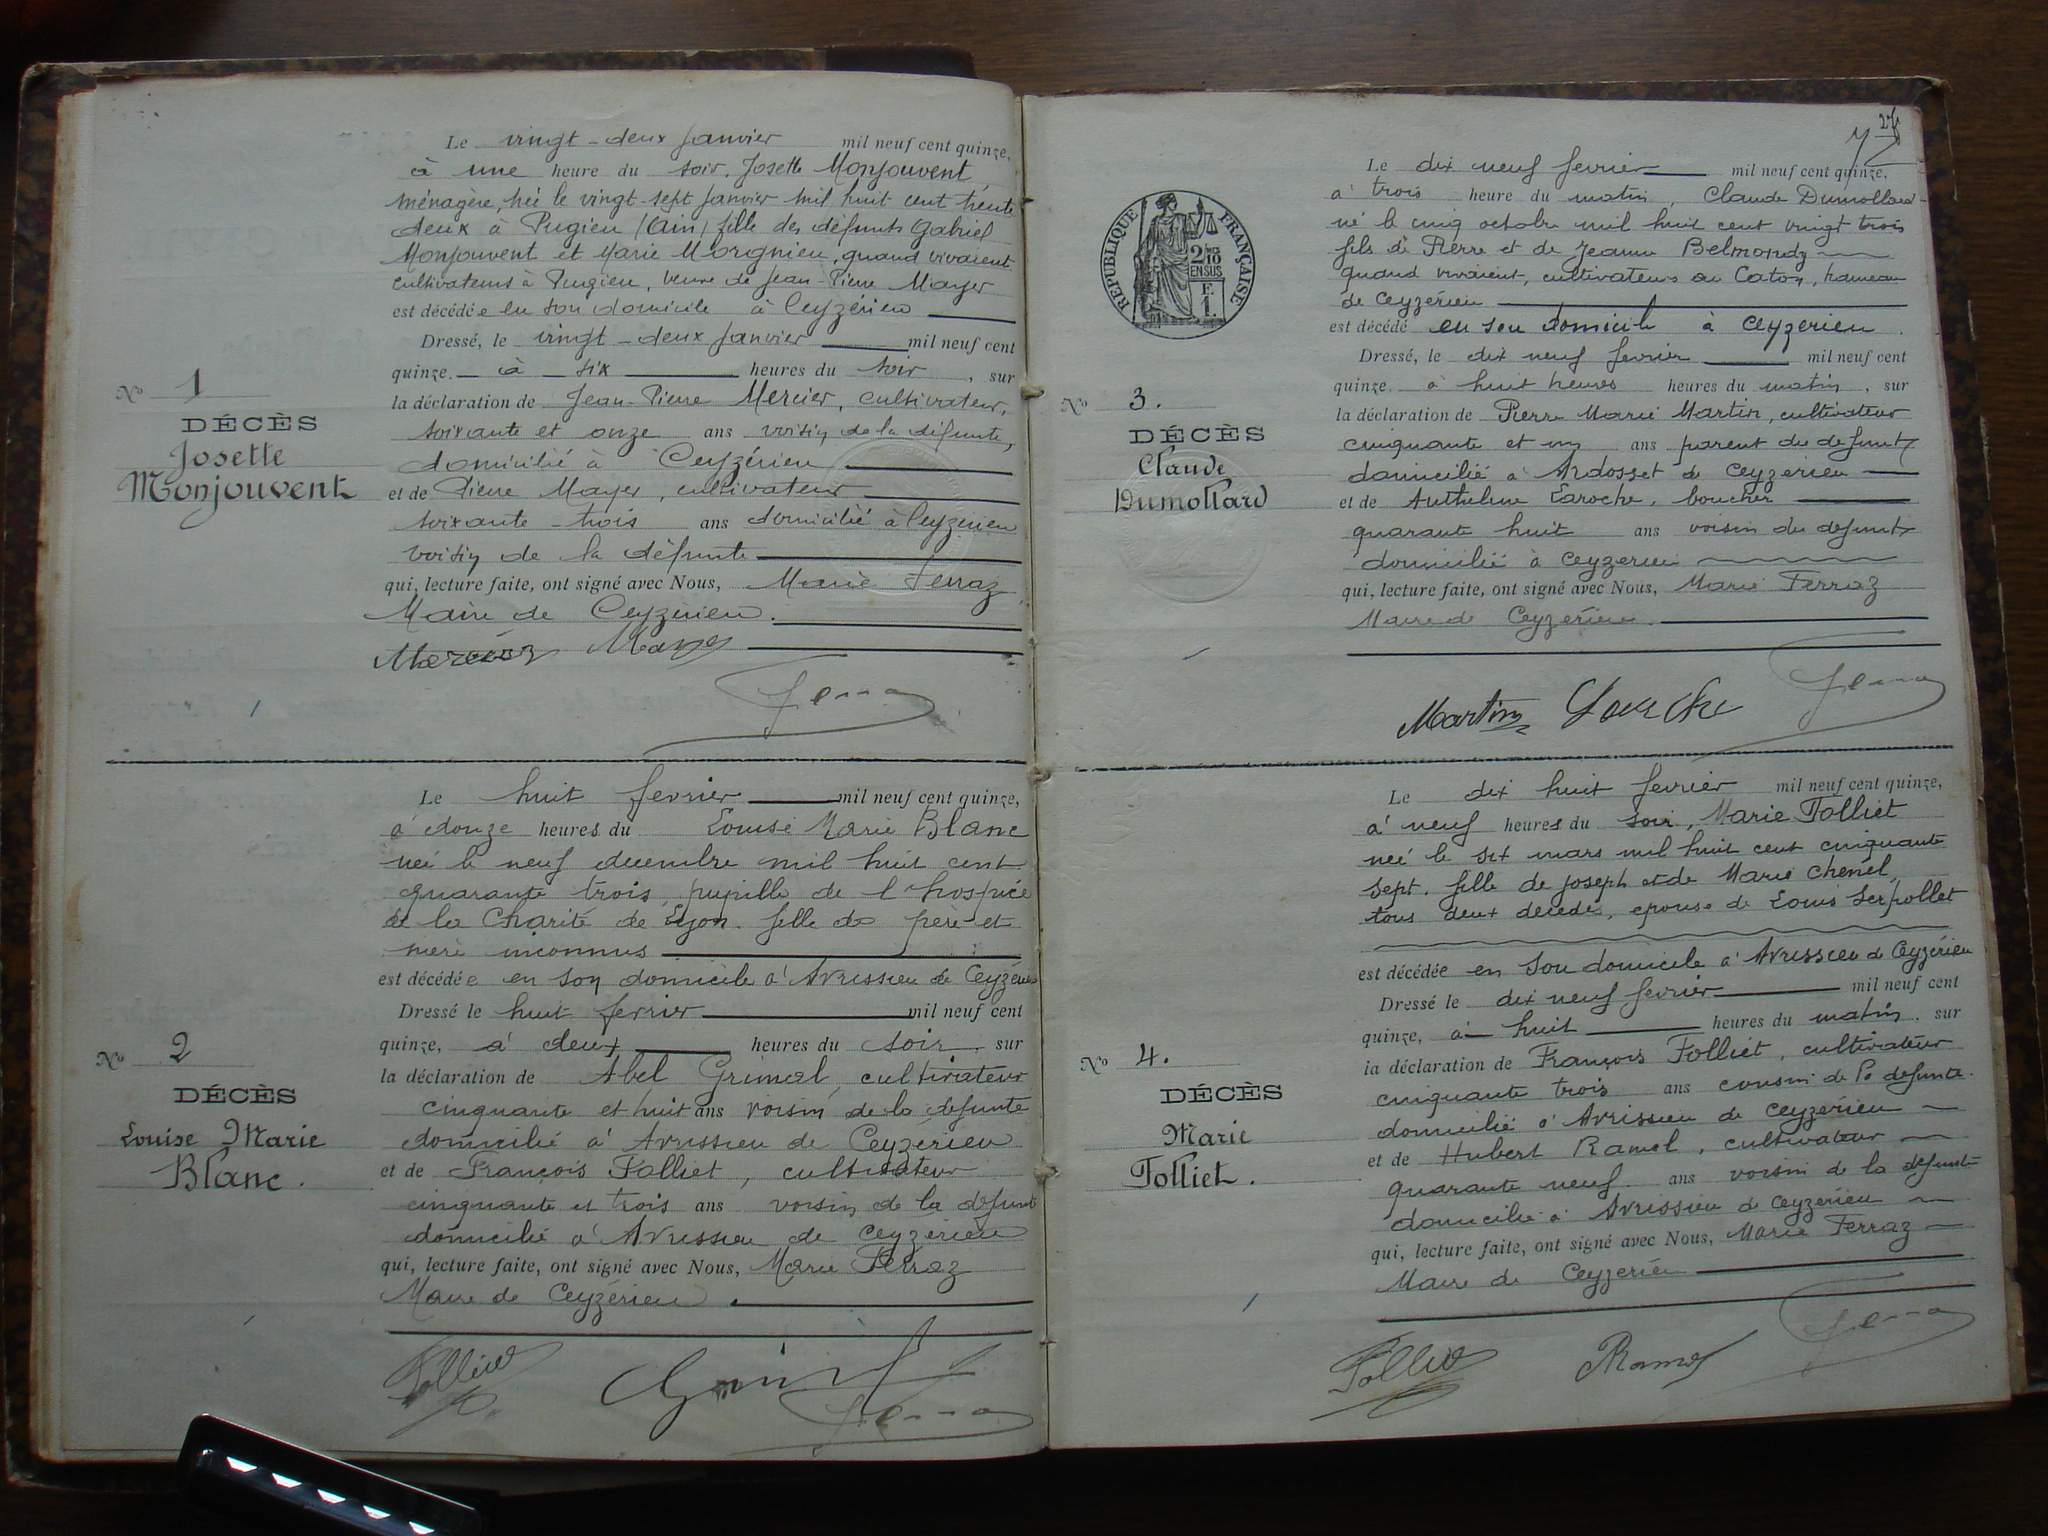 Le vingt-deux Janvier mil neuf cent quinze,
à une heure du soir, Josette Monjouvent
ménagère, née le vingt-sept Janvier mil huit cent trente
deux à Pugieu (Ain) fille des défunts Gabriel
Monjouvent et Marie Morgnieu, quand vivaient
cultivateurs à Pugieu, veuve de Jean-Pierre Mayer
est décédée en son domicile à Ceyzérieu
Dressé, le vingt-deux Janvier mil neuf cent
quinze à six heures du soir, sur
la déclaration de Jean-Pierre Mercier, cultivateur,
soixante et onze ans voisin de la défunte,
domicilié à Ceyzérieu
et de Pierre Mayer, cultivateur
soixante-trois ans domicilié à Ceyzerieu
voisin de la défunte
qui, lecture faite, ont signé avec Nous, Marie Ferraz
Maire de Ceyzerieu.
Mercier Mayer
Ferra
No 1
DÉCÈS
Josette
Monjouvent
Le huit fevrier mil neuf cent quinze,
à douze heures du Louise Marie Blanc
née le neuf decembre mil huit cent
quarante trois, pupille de l'hospice
de la Charité de Lyon. fille de père et
mere inconnus
est décédée en son domicile à Avrissieu de Ceyzérieu
Dressé le huit fevrier mil neuf cent
quinze, à deux heures du soir, sur
la déclaration de Abel Grimal, cultivateur
cinquante et huit ans voisin de la defunte
domicilié à Avrissieu de Ceyzérieu
et de François Folliet, cultivateur
cinquante et trois ans voisin de la defunte
domicilié à Avrissieu de Ceyzerieu
qui, lecture faite, ont signé avec Nous, Marie Ferraz
Maire de Ceyzérieu.
Folliet Grimal
Ferra
No 2
DÉCÈS
Louise Marie
Blanc.
RÉPUBLIQUE FRANÇAISE
2/10
EN SUS
F.
1.
Le dix neuf fevrier mil neuf cent quinze,
à trois heure du matin, Claude Dumollard
né le cinq octobre mil huit cent vingt trois
fils de Pierre et de Jeanne Belmondy
quand vivaient, cultivateurs au Caton, hameau
de Ceyzérieu
est décédé en son domicile à Ceyzerieu.
Dressé, le dix neuf fevrier mil neuf cent
quinze à huit heures heures du matin, sur
la déclaration de Pierre Marie Martin, cultivateur
cinquante et un ans parent du defunt
domicilié à Ardosset de Ceyzerieu
et de Anthelme Laroche, boucher
quarante huit ans voisin du defunt
domicilié à Ceyzerieu
qui, lecture faite, ont signé avec Nous, Marie Ferraz
Maire de Ceyzérieu.
Martin Laroche Ferra
No 3.
DÉCÈS
Claude
Dumollard
Le dix huit fevrier mil neuf cent quinze,
à neuf heures du soir, Marie Folliet
née le six mars mil huit cent cinquante
sept. fille de joseph et de Marie Chenel,
tous deux decedés, epouse de Louis Serpollet
est décédée en son domicile à Avrissieu de Ceyzérieu
Dressé le dix neuf fevrier mil neuf cent
quinze, à huit heures du matin, sur
la déclaration de François Folliet, cultivateur
cinquante trois ans cousin de la defunte.
domicilié à Avrissieu de Ceyzérieu
et de Hubert Ramel, cultivateur
quarante neuf ans voisin de la defunte
domicilié à Avrissieu de Ceyzérieu
qui, lecture faite, ont signé avec Nous, Marie Ferraz
Maire de Ceyzerieu
Folliet Ramel Ferra
No 4.
DÉCÈS
Marie
Folliet.